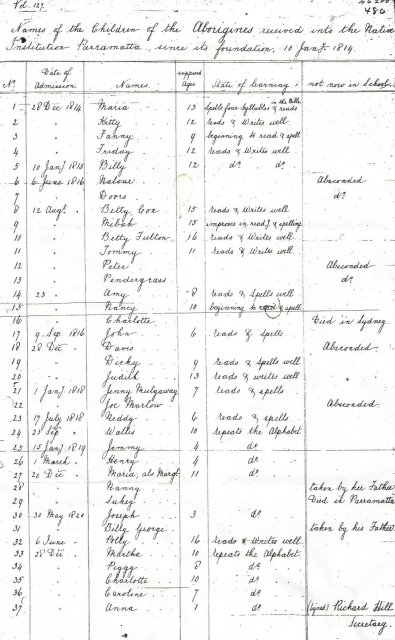 Vol. 127.
Names of the Children of the Aborigines received into the Native
Institution Parramatta, since its foundation, 10 Jany. 1814.
No. Date of Admission Names. supposed Ages State of Learning. not now in School.
1 28 Dec 1814 Maria 13 Spells four Syllables & reads in the Bible
2 " Kitty 12 reads & Writes well
3 " Fanny 9 beginning to read & spell
4 " Friday 12 reads & Writes well
5 10 Jany 1815 Billy 12 do do
6 6 June 1816 Nalour Absconded
7 " Doors do
8 12 Augt. " Betty Cox 15 reads & Writes well
9 " Milbah 15 improves in readg. & spelling
10 " Betty Fulton 16 reads & Writes well
11 " Tommy 11 reads & Writes well
12 " Peter Absconded
13 " Pendergrass do
14 23 " Amy 8 reads & Spells well
15 " Nancy 10 beginning to repeat & spell
16 " Charlotte Died in Sydney
17 9 Sep 1816 John 6 reads & Spells
18 28 Dec " Davis Absconded
19 " Dicky 9 reads & Spells well
20 " Judith 13 reads & writes well
21 1 Jany 1818 Jenny Mulgaway 7 reads & spells
22 " Joe Marlow Absconded
23 17 July 1818 Neddy 6 reads & spells
24 23 Sep " Wallis 10 repeats the Alphabet
25 15 Jany 1819 Jemmy 4 do
26 1 March " Henry 4 do
27 20 Dec " Maria, als Margt 11 do
28 " Nanny taken by her Father
29 " Sukey Died in Parramatta
30 30 May 1820 Joseph 3 do
31 " Billy George taken by his Father.
32 6 June " Polly 16 reads & Writes well
33 28 Dec " Martha 10 repeats the Alphabet
34 " Peggy 8 do
35 " Charlotte 10 do
36 " Caroline 7 do
37 " Anna 1 do (signed) Richard Hill
Secretary.